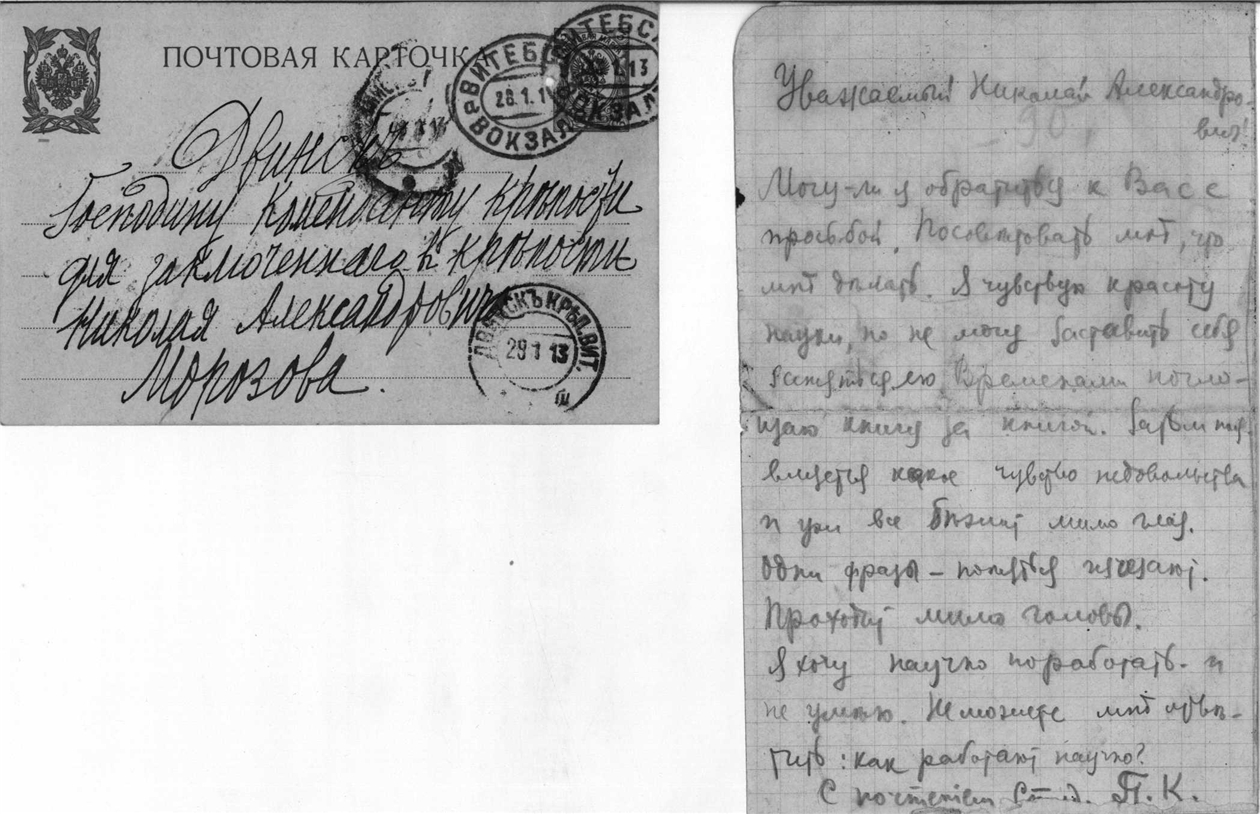 ПОЧТОВАЯ КАРТОЧКА
ВИТЕБСК
28.1.1
ВОКЗАЛ
ВИТЕБСК
1.13
ВОКЗАЛ
Двинскъ
Господину Коменданту крѣпости
для заключеннаго въ крѣпости
Николая Александровича
Морозова.
ДВИНСКЪ КРѢП. ВИТ.
29 1 13
Уважаемый Николай Александро-
вич!
Могу-ли я обратиться к Вас с
просьбой. Посовѣтовать мнѣ, что
мнѣ дѣлать. Я чувствую красоту
науки, но не могу заставить себя
заняться ею. Временами погло-
щаю книгу за книгой. Затѣм
чувство недовольства
и уже все бѣжит мимо глаз.
Одни фразы – понятья изчезают.
Проходят мимо головы.
Я хочу научно поработать - и
не умѣю. Не можете мнѣ отвѣ-
тить: как работают научно?
С почтеніем Студ. П. К.